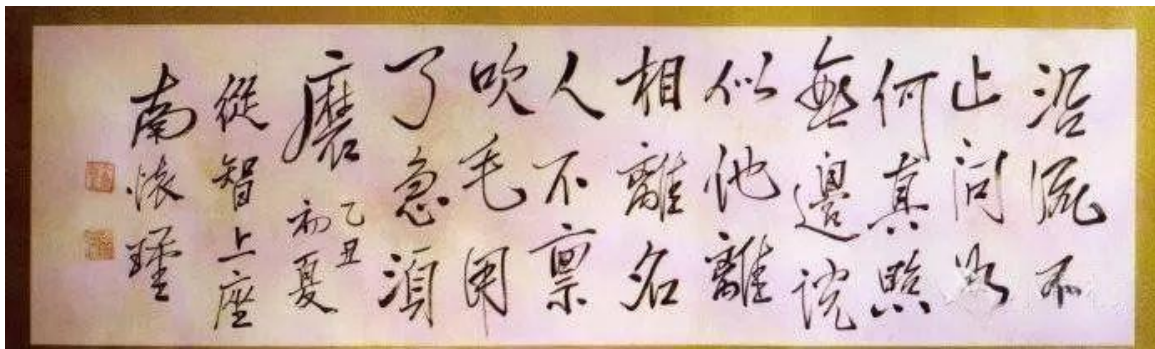 沿流不
止問如
何真照
無邊説
似他離
相離名
人不禀
吹毛用
了急須
磨
乙丑
初夏
從智上座
南懷瑾